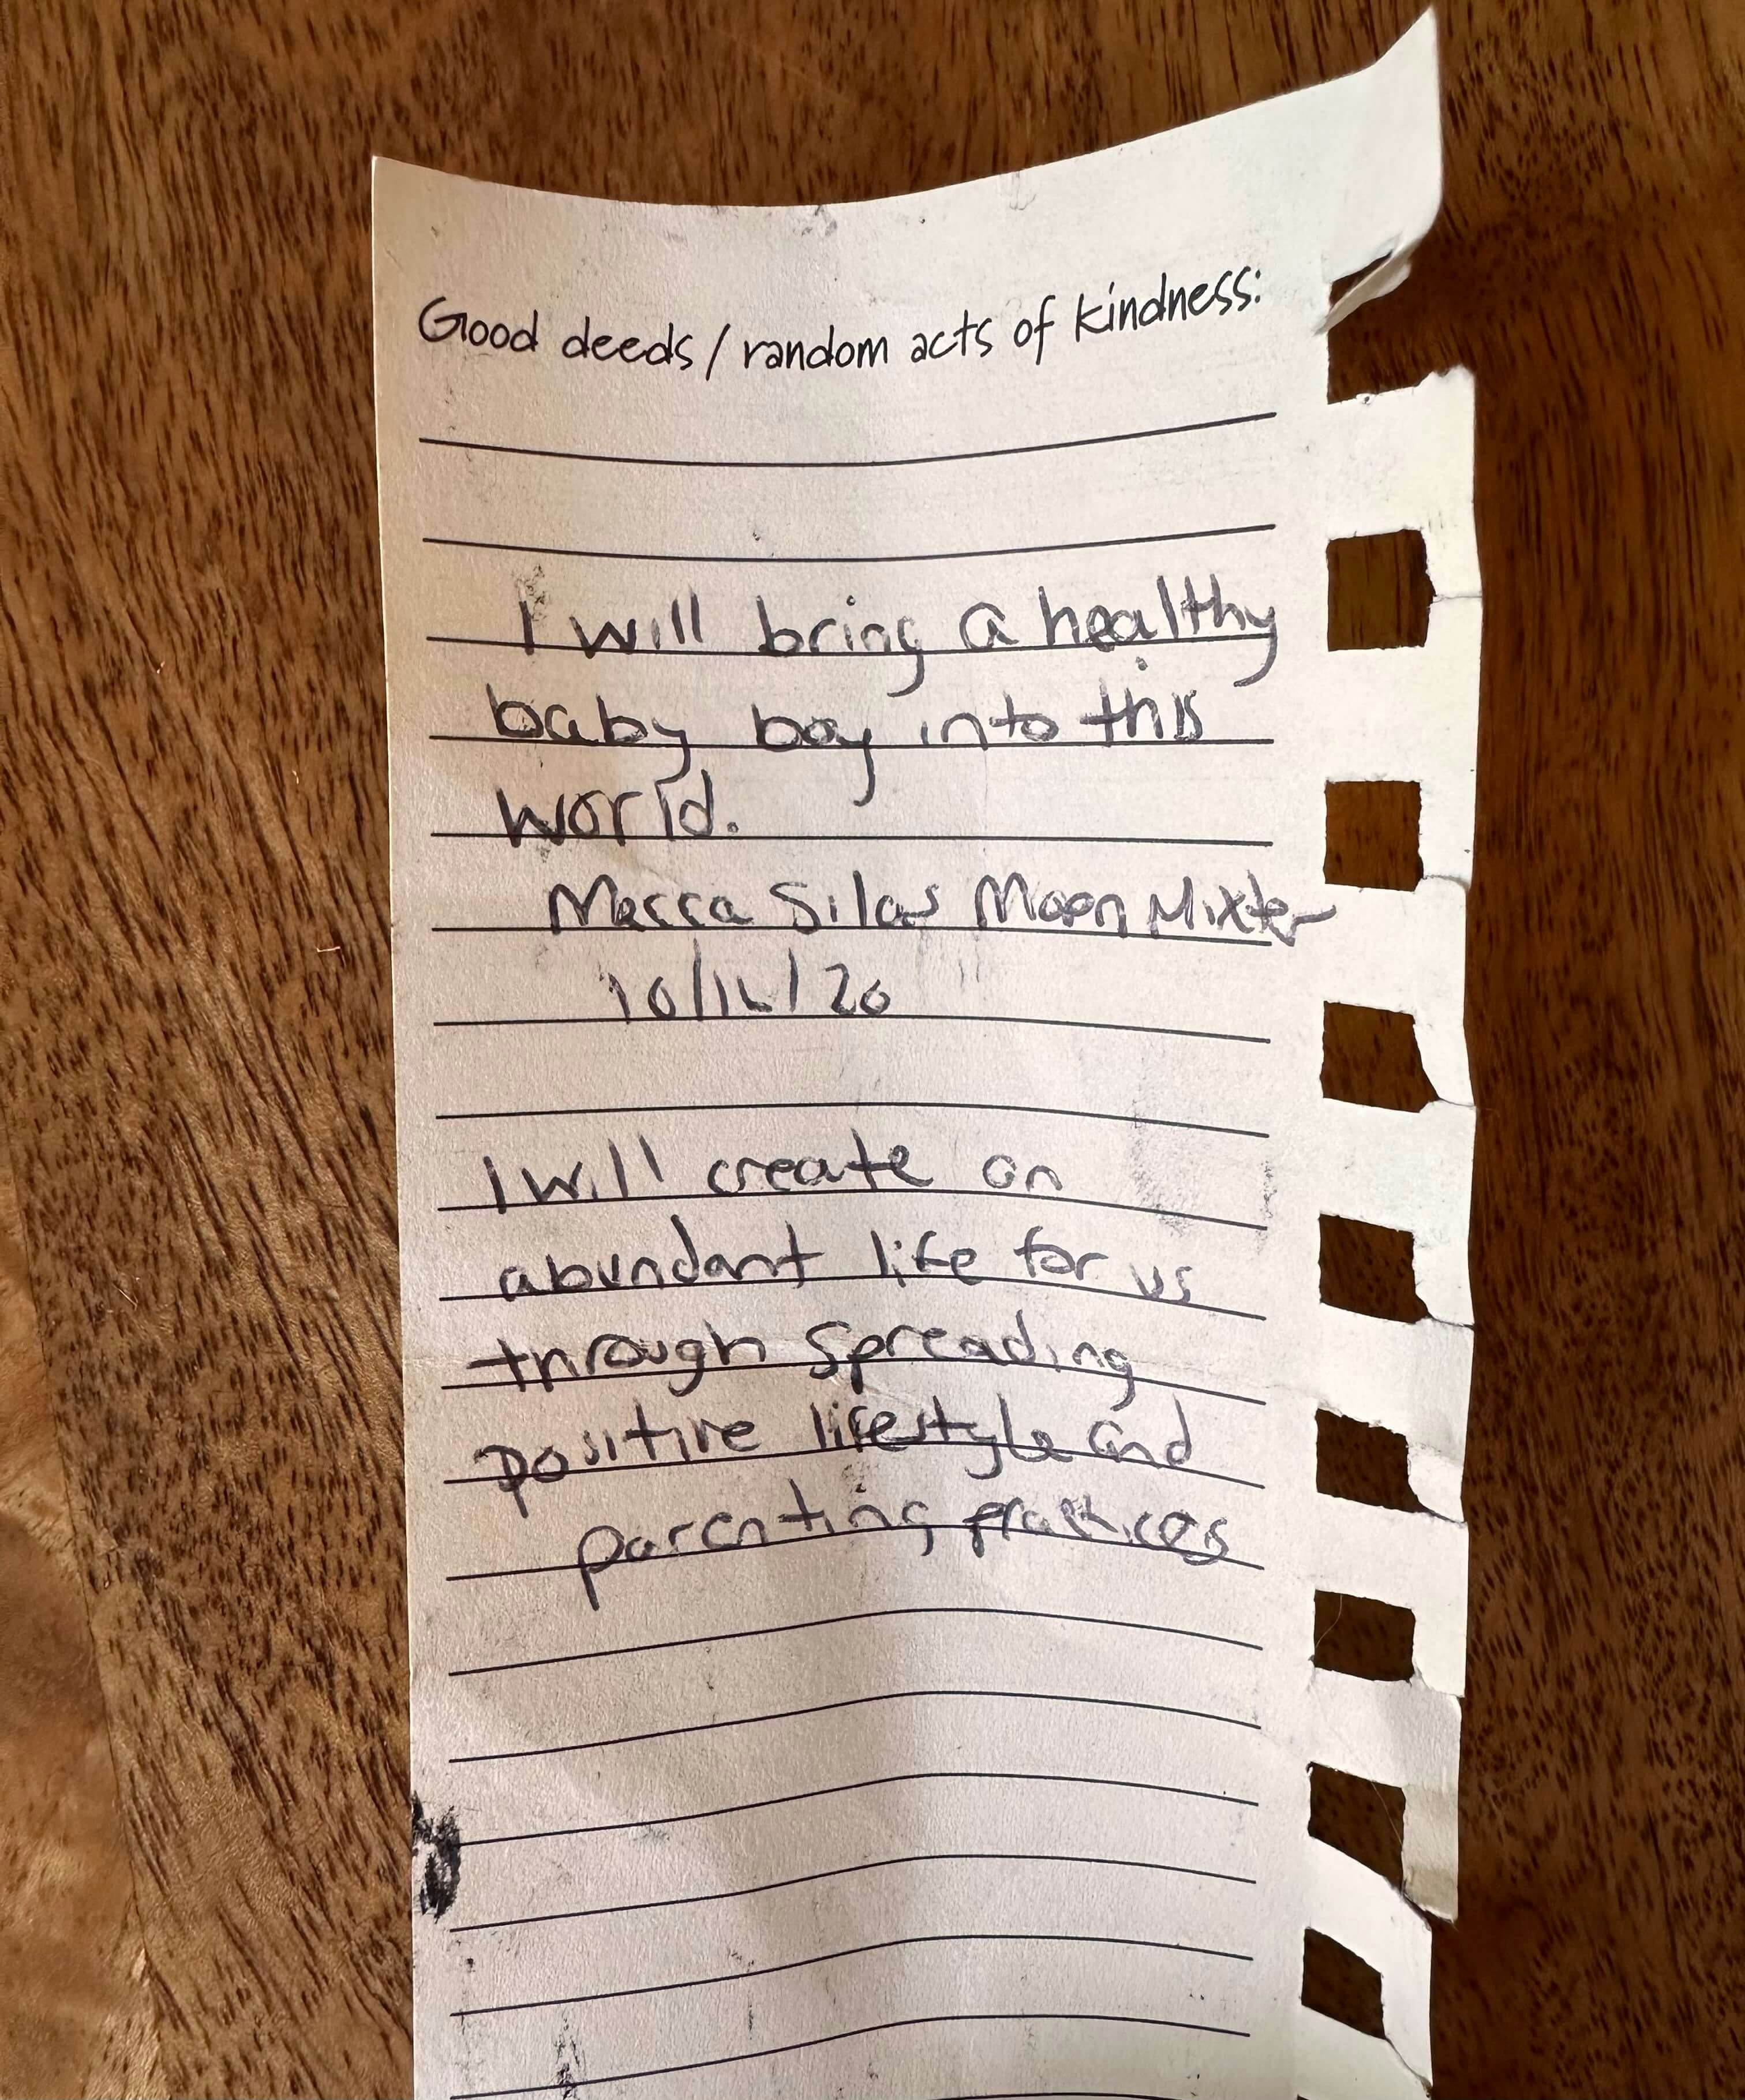 Good deeds / random acts of kindness:
I will bring a healthy
baby boy into this
world.
Mecca Silas Moon Mixter
10/16/20
I will create an
abundant life for us
through spreading
positive lifestyle and
parenting practices